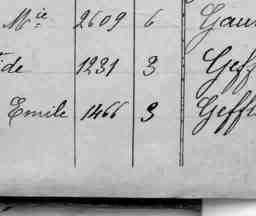 Mie 2609 6 Gau
de 1231 3 Geff
Emile 1466 3 Geff